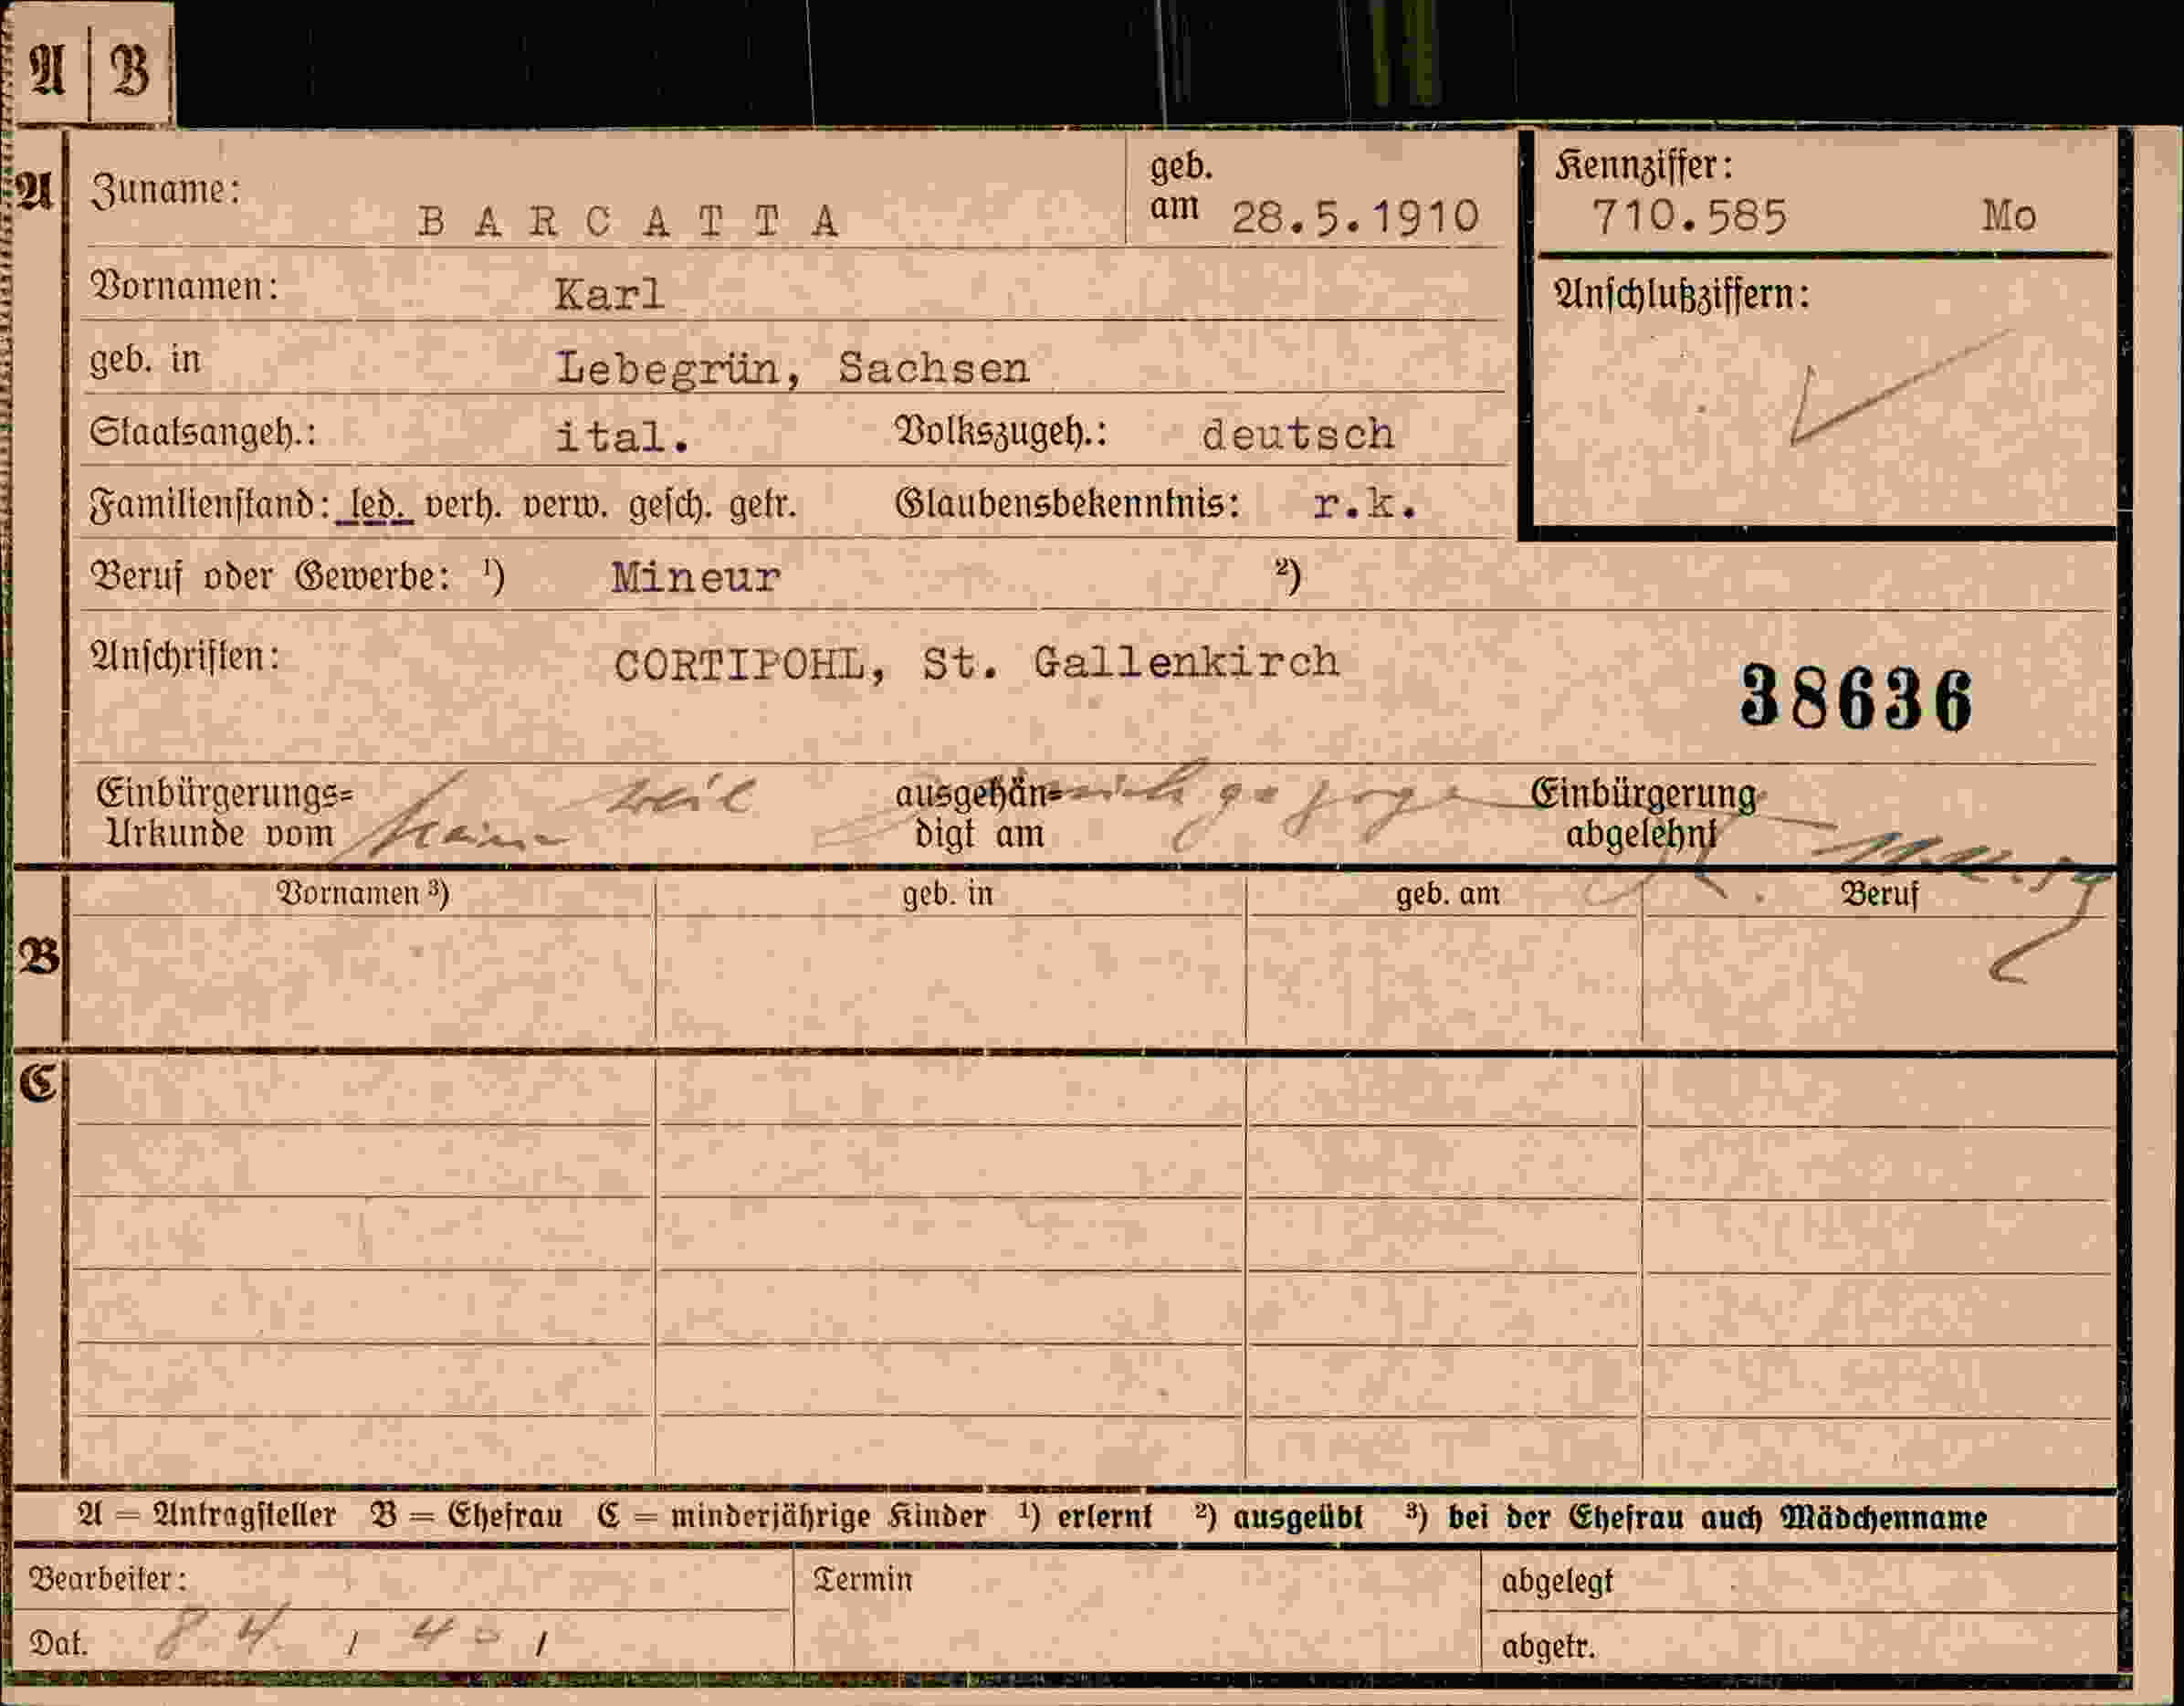 A B
A Zuname: BARCATTA geb. am 28.5.1910 Kennziffer: 710.585 Mo
Vornamen: Karl Anschlußziffern:
geb. in Lebegrün, Sachsen
Staatsangeh.: ital. Volkszugeh.: deutsch
Familienstand: led. verh. verw. gesch. getr. Glaubensbekenntnis: r.k.
Beruf oder Gewerbe: ¹) Mineur ²)
Anschriften: CORTIPOHL, St. Gallenkirch
38636
Einbürgerungs= weil ausgehän= Einbürgerung
Urkunde vom digt am abgelehnt
B Vornamen ³) geb. in geb. am Beruf
C
A = Antragsteller B = Ehefrau C = minderjährige Kinder ¹) erlernt ²) ausgeübt ³) bei der Ehefrau auch Mädchenname
Bearbeiter: Termin abgelegt
Dat. 8.4. / 40 / abgetr.